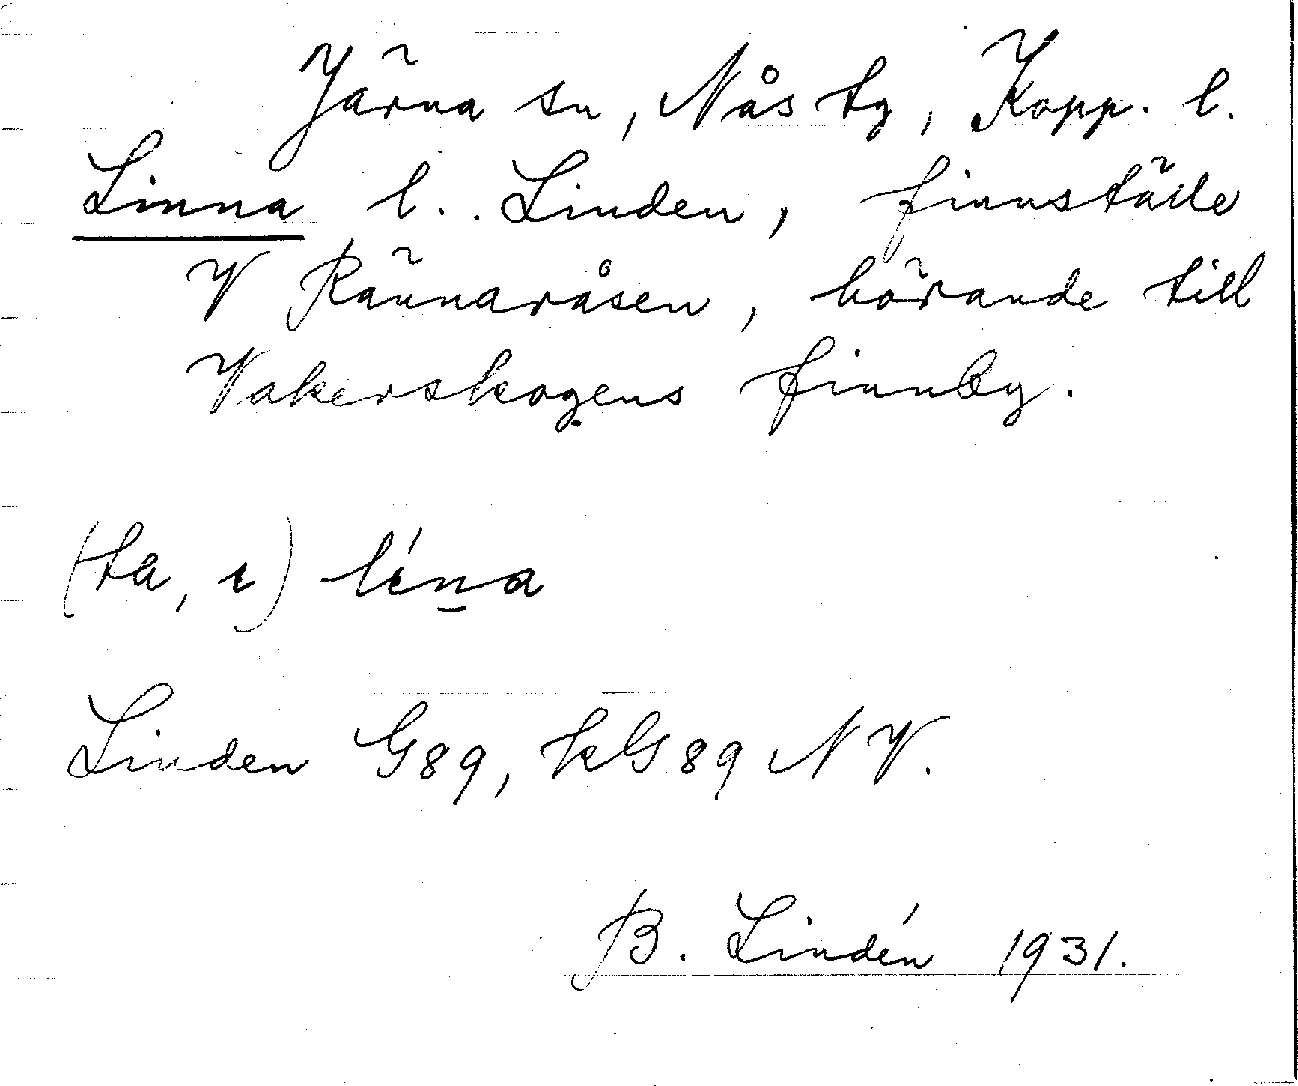 Järna sn, Nås tg, Kopp. l.
Linna l. Linden, finnställe
V Rännaråsen, hörande till
Vakerskogens finnby.
(ta, ɩ) lɩ́na
Linden G89, kG89 NV.
B. Lindén 1931.